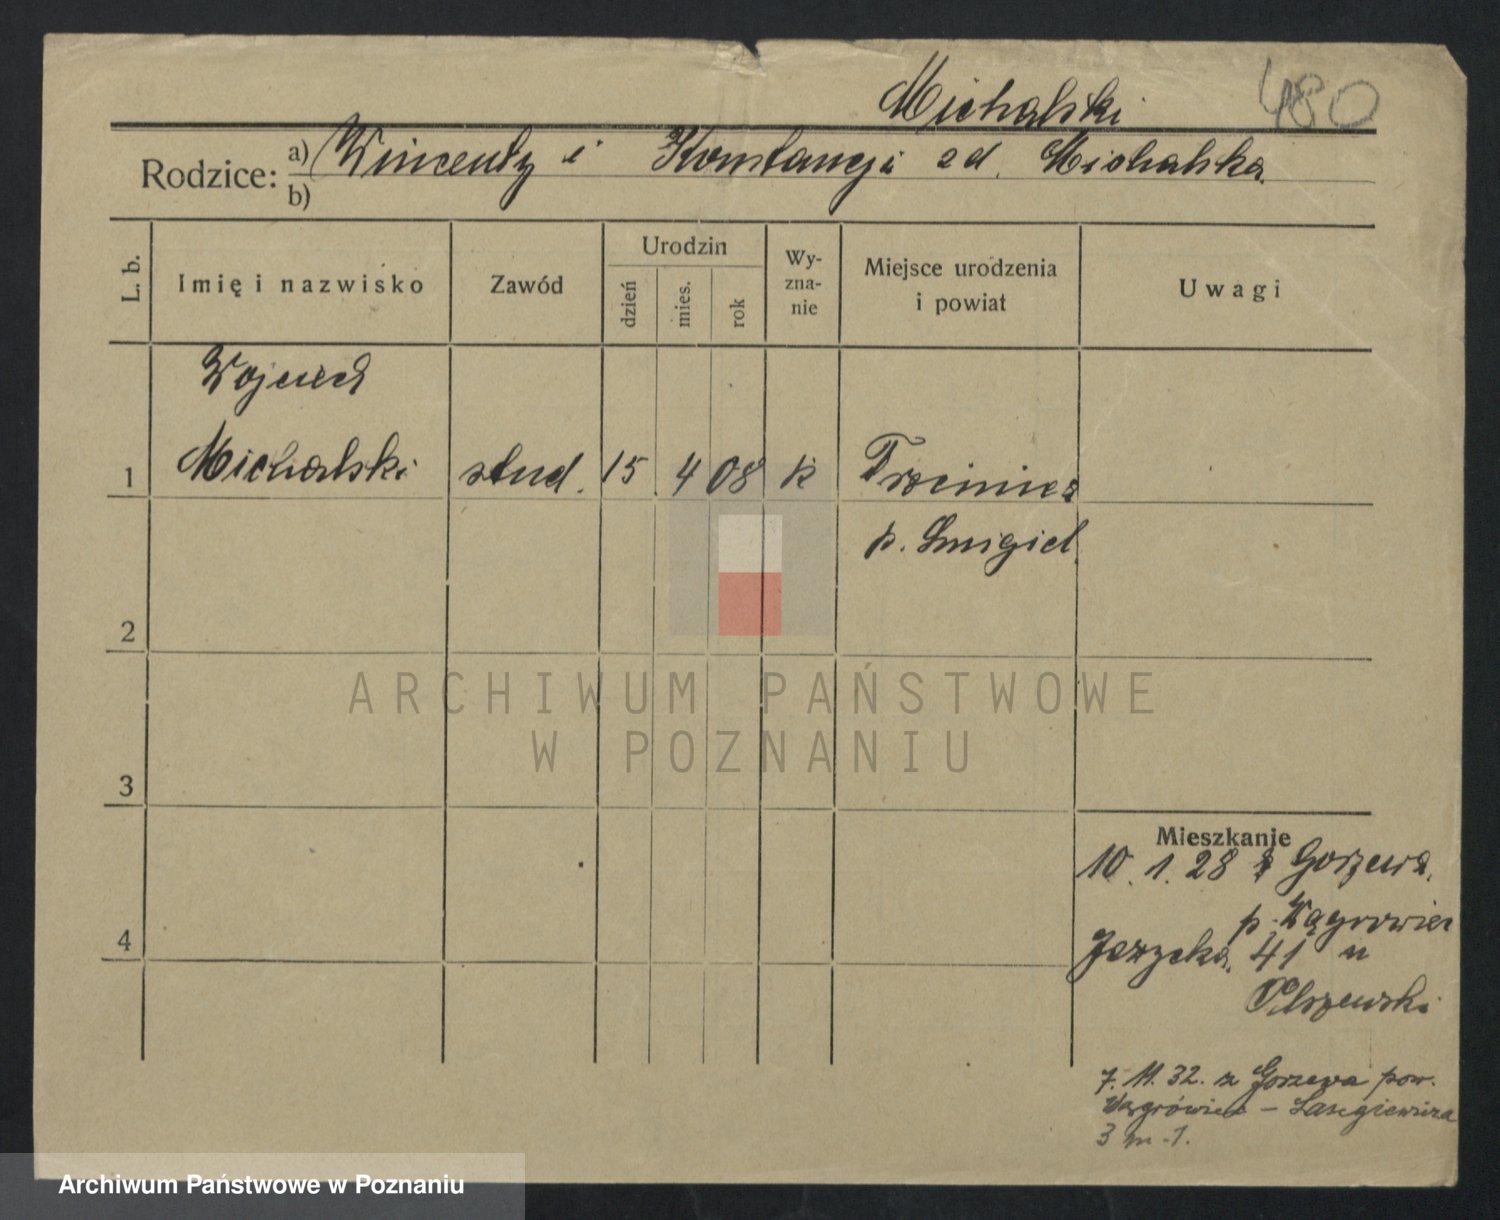 Michalski 480
Rodzice: a) Wincenty i Konstancji zd. Michalska
b)
L. b.
Imię i nazwisko
Zawód
Urodzin
dzień
mies.
rok
Wy-
zna-
nie
Miejsce urodzenia
i powiat
Uwagi
Wojciech
1 Michalski stud. 15 4 08 k Trzcinica
p. Smigiel
2
ARCHIWUM PAŃSTWOWE
W POZNANIU
3
Mieszkanie
10.1.28 z Gorzewa
p. Wągrowiec
4
Jeżycka 41 u
Olszewski
7. 11. 32. z Gorzewa pow.
Wągrówiec –
3 m. 1.
Archiwum Państwowe w Poznaniu